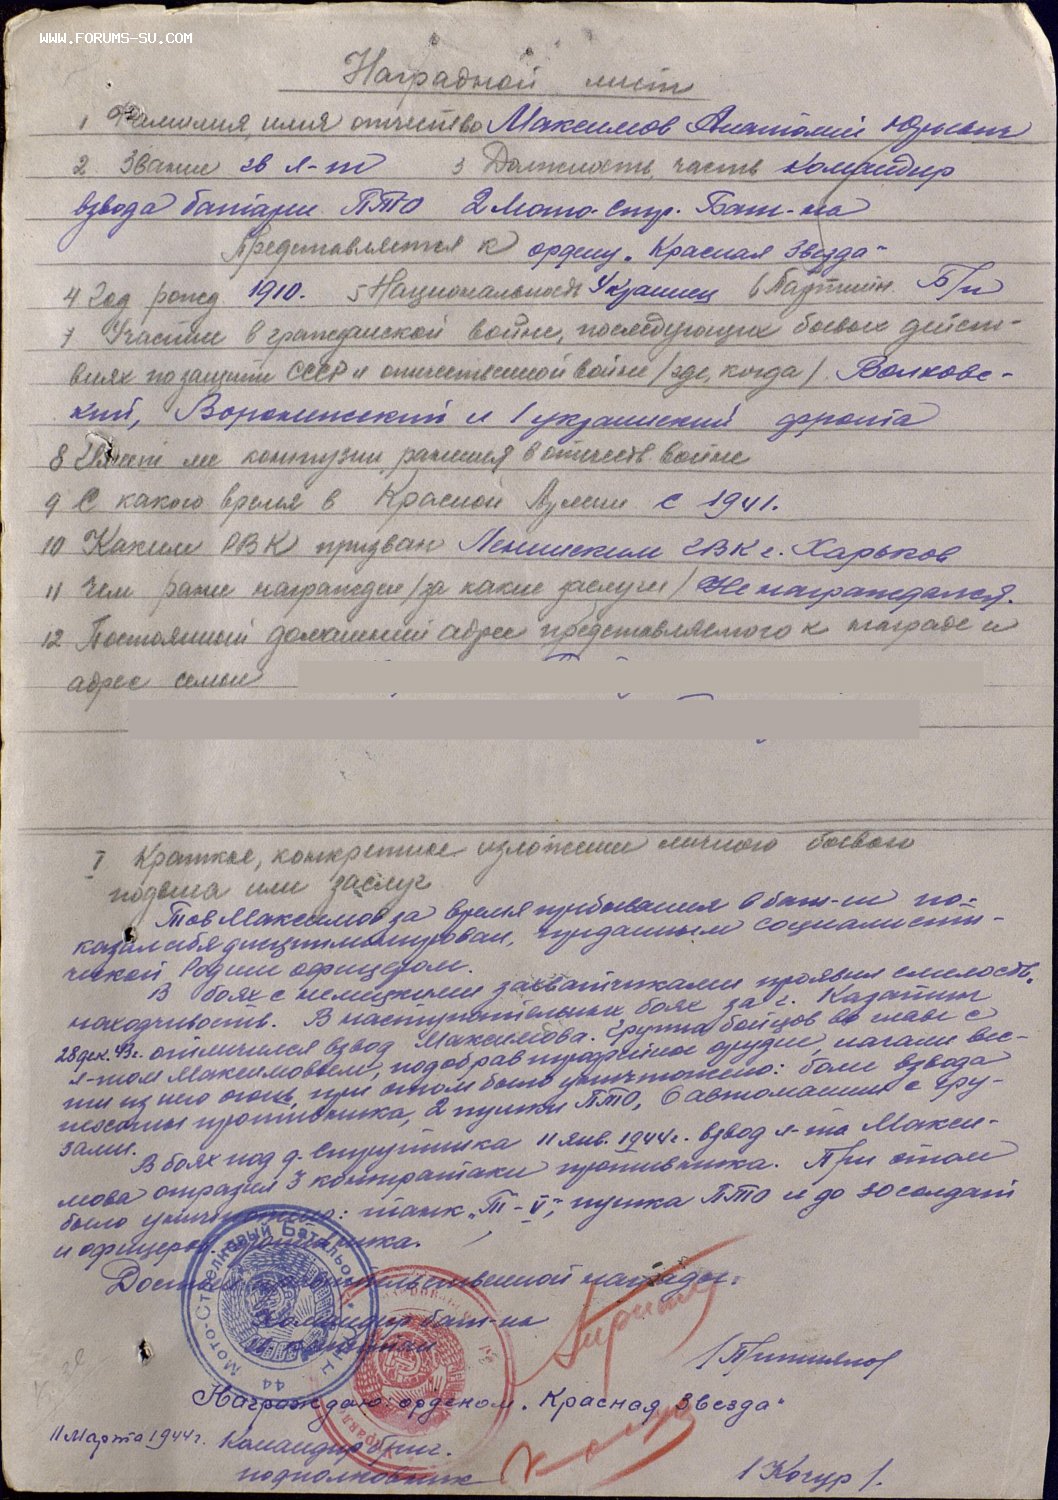 WWW.FORUMS-SU.COM
Наградной лист
1 Фамилия, имя отчество Максимов Анатолий Юрьевич
2 Звание гв л-т 3 Должность, часть командир
взвода батареи ПТО 2 Мото-стр. Бат-на
Представляется к ордену „Красная Звезда"
4 Год рожд 1910. 5 Национальность Украинец 6 Партийн. Б/п
7 Участие в гражданской войне, последующих боевых дейст-
виях по защите СССР и отечественной войне /где, когда/. Волховс-
кий, Воронежский и 1 украинский фронта
8 Имеет ли контузии, ранения в отечеств. войне
9 С какого время в Красной Армии с 1941.
10 Каким РВК призван Ленинским РВК г. Харьков
11 Чем ранее награжден /за какие заслуги/ Не награждался.
12 Постоянный домашний адрес представляемого к награде и
адрес семьи
I Краткое, конкретное изложение личного боевого
подвига или заслуг
Тов Максимов за время пребывания в бат-не по-
казал себя дисциплинирован, преданным социалисти-
ческой Родине офицером.
В боях с немецкими захватчиками проявил смелость,
находчивость. В наступательных боях за г. Казатин
28 дек. 43г. отличился взвод Максимова. Группа бойцов во главе с
л-том Максимовым, подобрав трофейное орудие, начали вес-
ти из него огонь, при этом было уничтожено: более взвода
противника, 2 пушки ПТО, 6 автомашин с гру-
зами.
В боях под д. 11 янв. 1944г. взвод л-та Макси-
мова отразил 3 контратаки противника. При этом
было уничтожено: танк „Т-V", пушка ПТО и до 30 солдат
и офицеров противника.
Достоин правительственной награды.
Командир бат-на
Мото-Стрелковый Батальон
44
Награждаю: орденом „Красная Звезда"
11 Марта 1944г. Командир бриг.
подполковник /Кочур/.